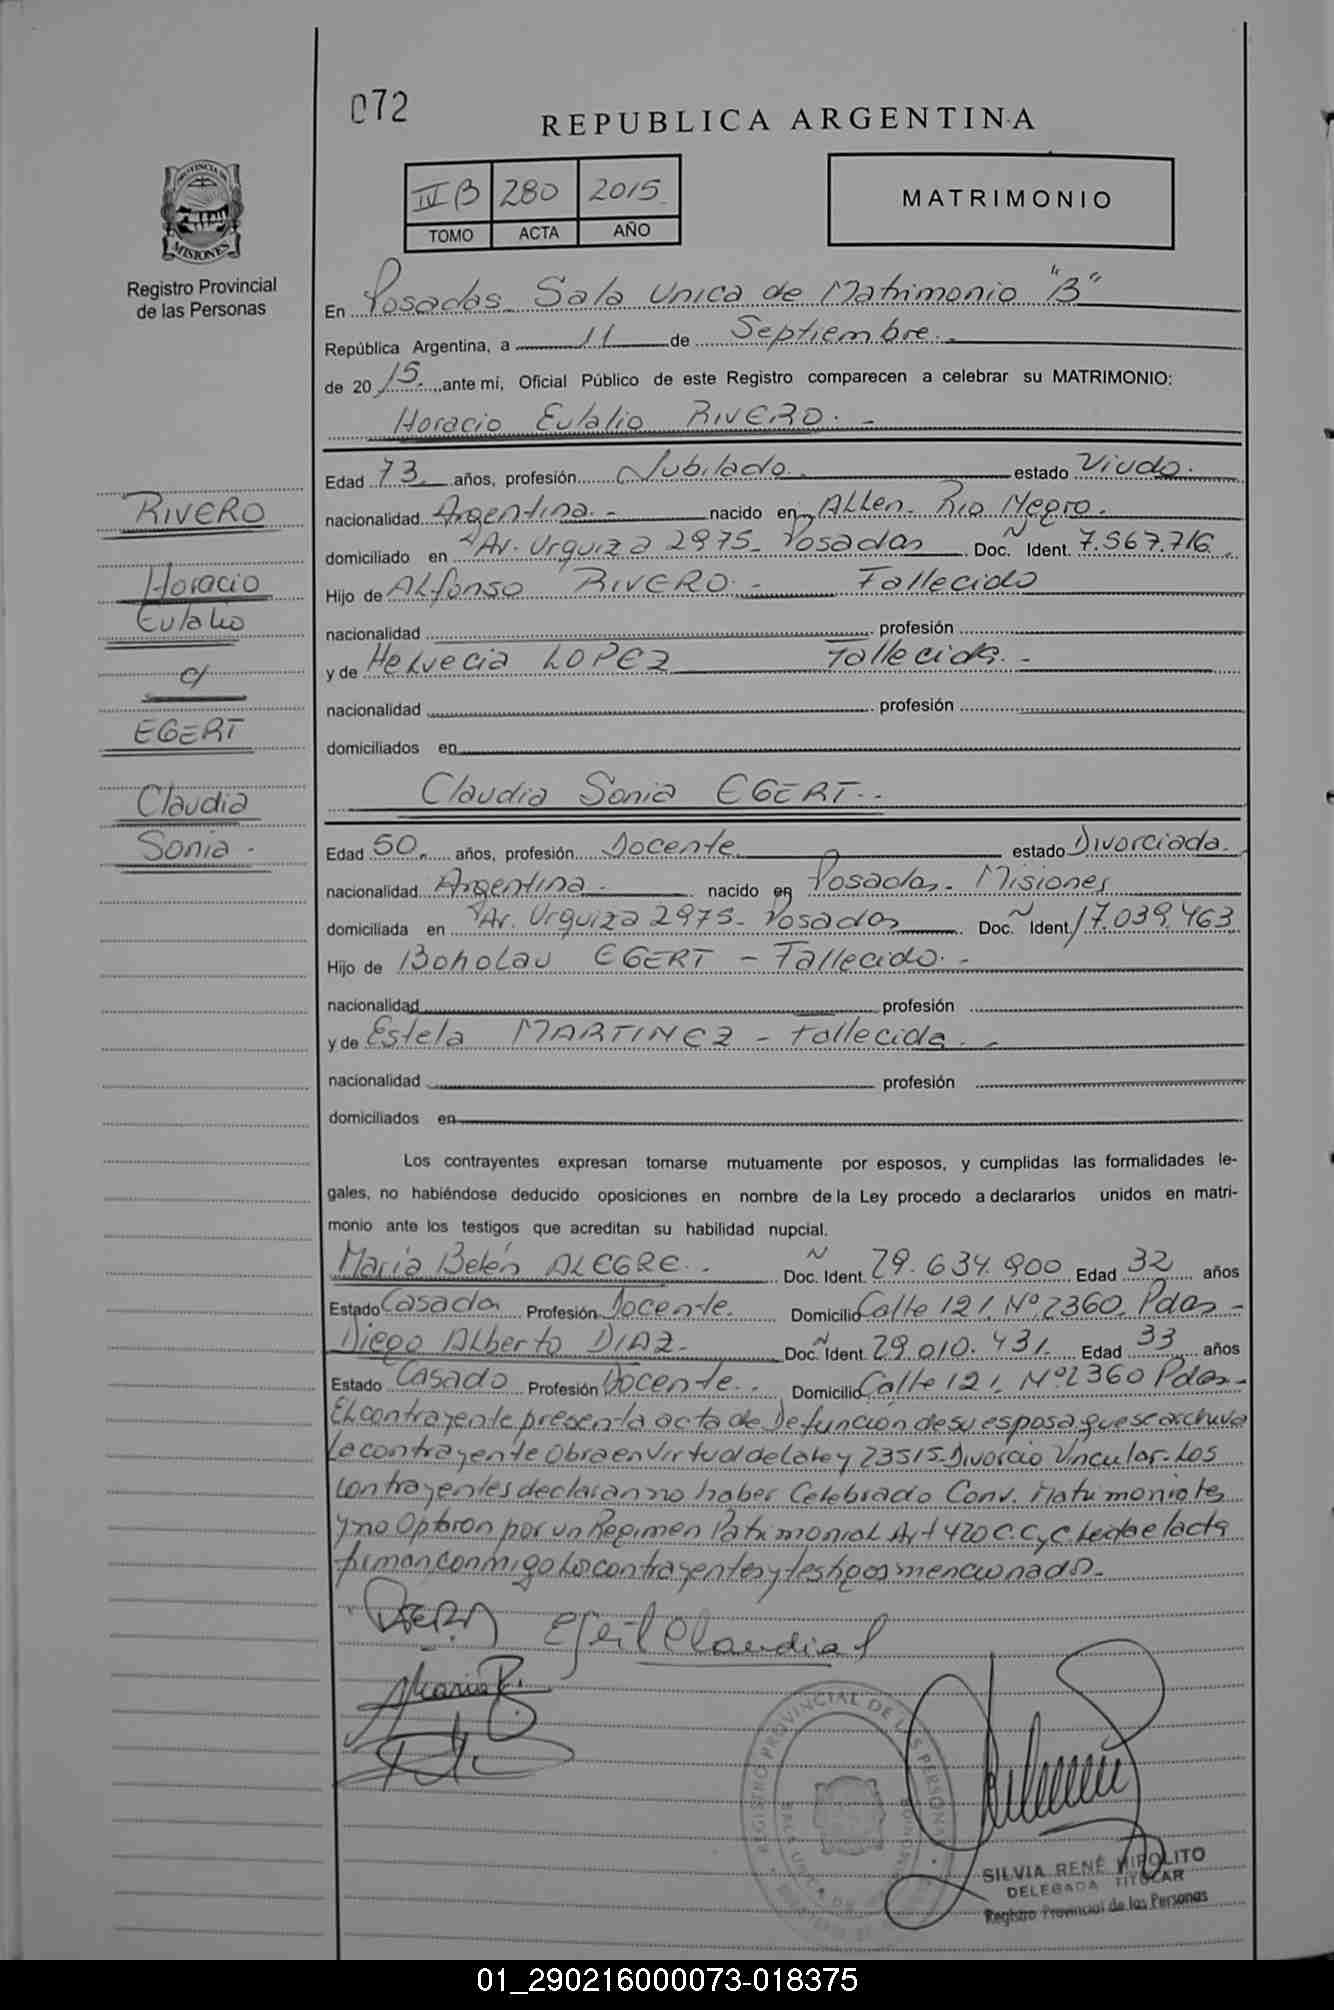 072
REPUBLICA ARGENTINA
IV B 280 2015
TOMO ACTA AÑO
MATRIMONIO
PROVINCIA DE
MISIONES
Registro Provincial
de las Personas
En Posadas Sala Unica de Matrimonio "B"
República Argentina, a 11 de Septiembre.
de 20 15. ante mí, Oficial Público de este Registro comparecen a celebrar su MATRIMONIO:
Horacio Eulalio RIVERO. -
Edad 73 años, profesión Jubilado. estado Viudo.
nacionalidad Argentina. - nacido en ALLen. Rio Negro.
domiciliado en Av. Urquiza 2975. Posadas Doc. Ident. 7.567.716.
Hijo de ALfonso RIVERO. - Fallecido
nacionalidad profesión
y de Helvecia LOPEZ Fallecida. -
nacionalidad profesión
domiciliados en
RIVERO
Horacio
Eulalio
c/
EGERT
Claudia
Sonia.
Claudia Sonia EGERT. -
Edad 50. años, profesión Docente estado Divorciada.
nacionalidad Argentina. nacido en Posadas. Misiones
domiciliada en Av. Urquiza 2975. Posadas Doc. Ident. 17.039.463
Hijo de EGERT - Fallecido. -
nacionalidad profesión
y de Estela MARTINEZ - Fallecida. -
nacionalidad profesión
domiciliados en
Los contrayentes expresan tomarse mutuamente por esposos, y cumplidas las formalidades le-
gales, no habiéndose deducido oposiciones en nombre de la Ley procedo a declararlos unidos en matri-
monio ante los testigos que acreditan su habilidad nupcial.
María Belén ALEGRE. - Doc. Ident. 29.634.900 Edad 32 años
Estado Casada Profesión Docente. Domicilio Calle 121. Nº 2360. Pdas -
Diego ALberto DIAZ. Doc. Ident. 29.010.431. Edad 33 años
Estado Casado Profesión Docente. Domicilio Calle 121. Nº 2360 Pdas -
El contrayente presenta acta de Defuncion de su esposa que se archiva
La contrayente Obra en Virtud de La Ley 23515. Divorcio Vincular. Los
contrayentes declaran no haber Celebrado Conv. Matrimoniales
y no Optaron por un Regimen Patrimonial Art 420 C.C.yC. Leida el acta
firman conmigo Los contrayentes y testigos mencionados.
Egert Claudia S
REGISTRO PROVINCIAL DE LAS PERSONAS
SILVIA RENÉ HIPOLITO
DELEGADA TITULAR
Registro Provincial de las Personas
01_290216000073-018375